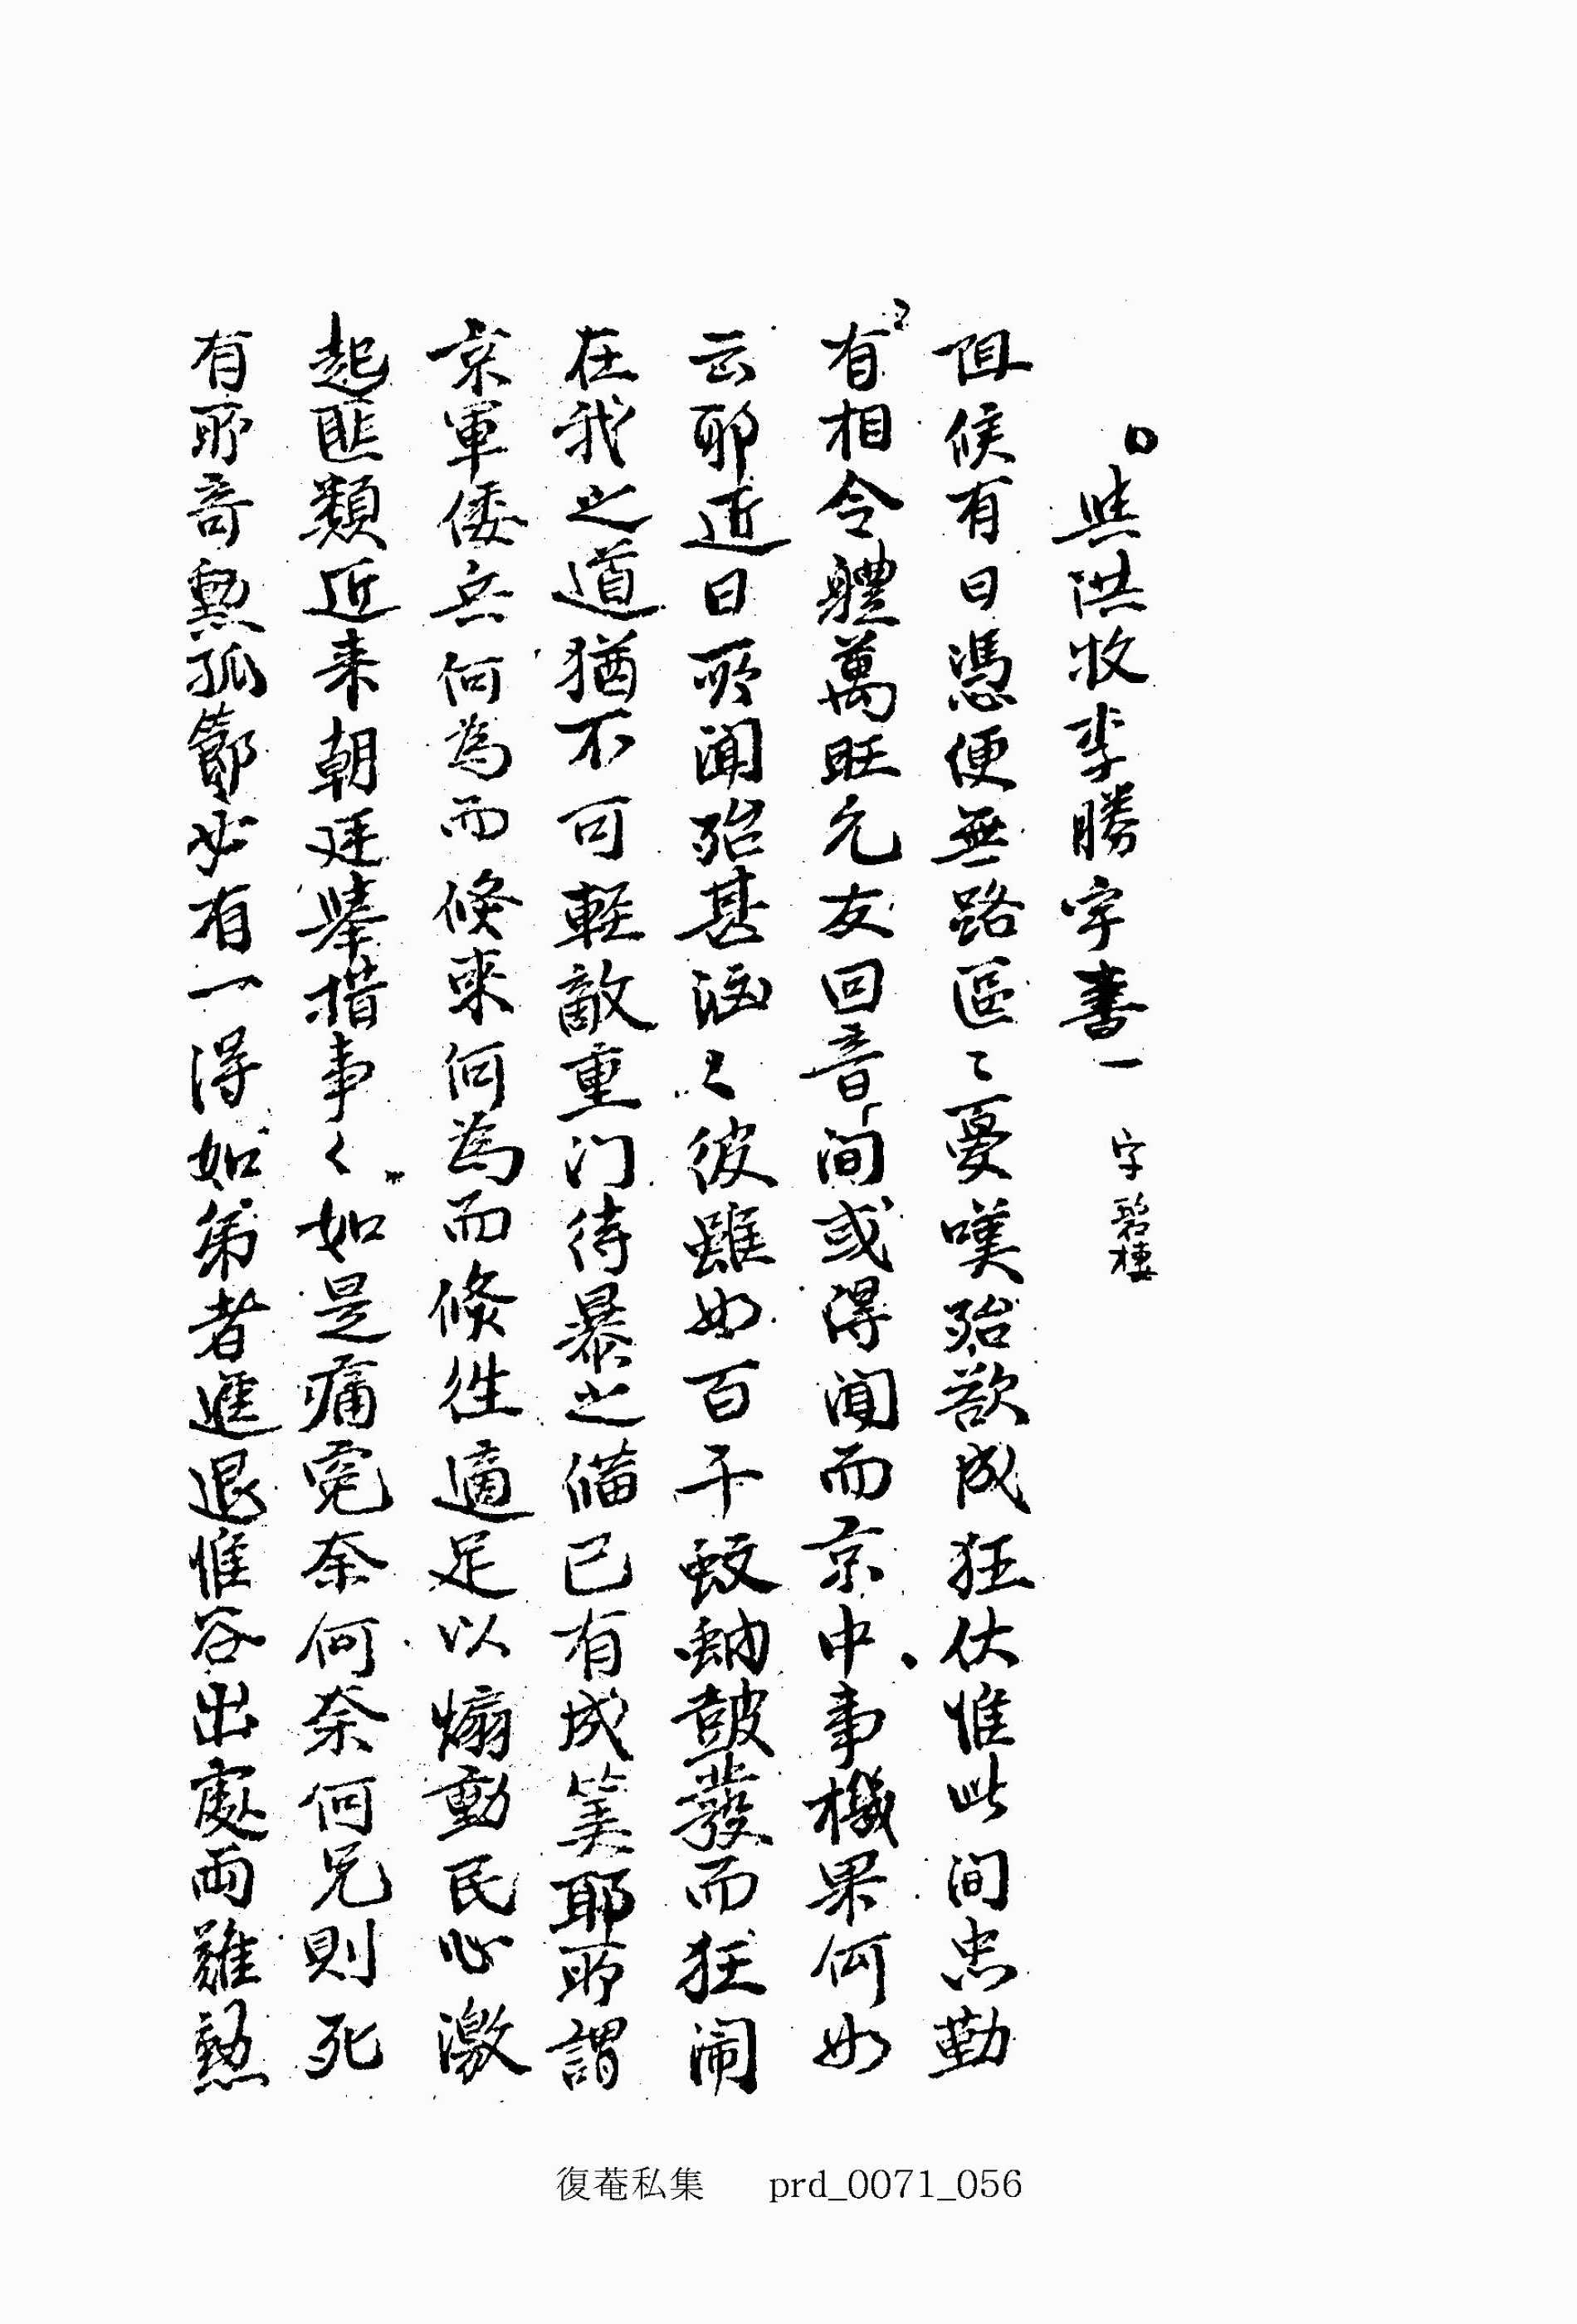 與洪牧李勝宇書一 字碧棲
阻候有日憑便無路區〻憂嘆殆欲成狂伏惟此間忠勤
有相令體萬旺允友回音間或得聞而京中事機果何如
云耶近日所聞殆甚洶〻彼雖如百千蚊蚋皷發而狂鬧
在我之道猶不可輕敵重门待暴之備已有成筭耶所謂
京軍倭兵何為而倏來何為而倏徃適足以煽動民心激
起匪類近来朝廷舉措事〻如是痛寃奈何奈何兄則死
有所奇勲孤節必有一得如弟者進退惟谷出處兩難愁
復菴私集 prd_0071_056